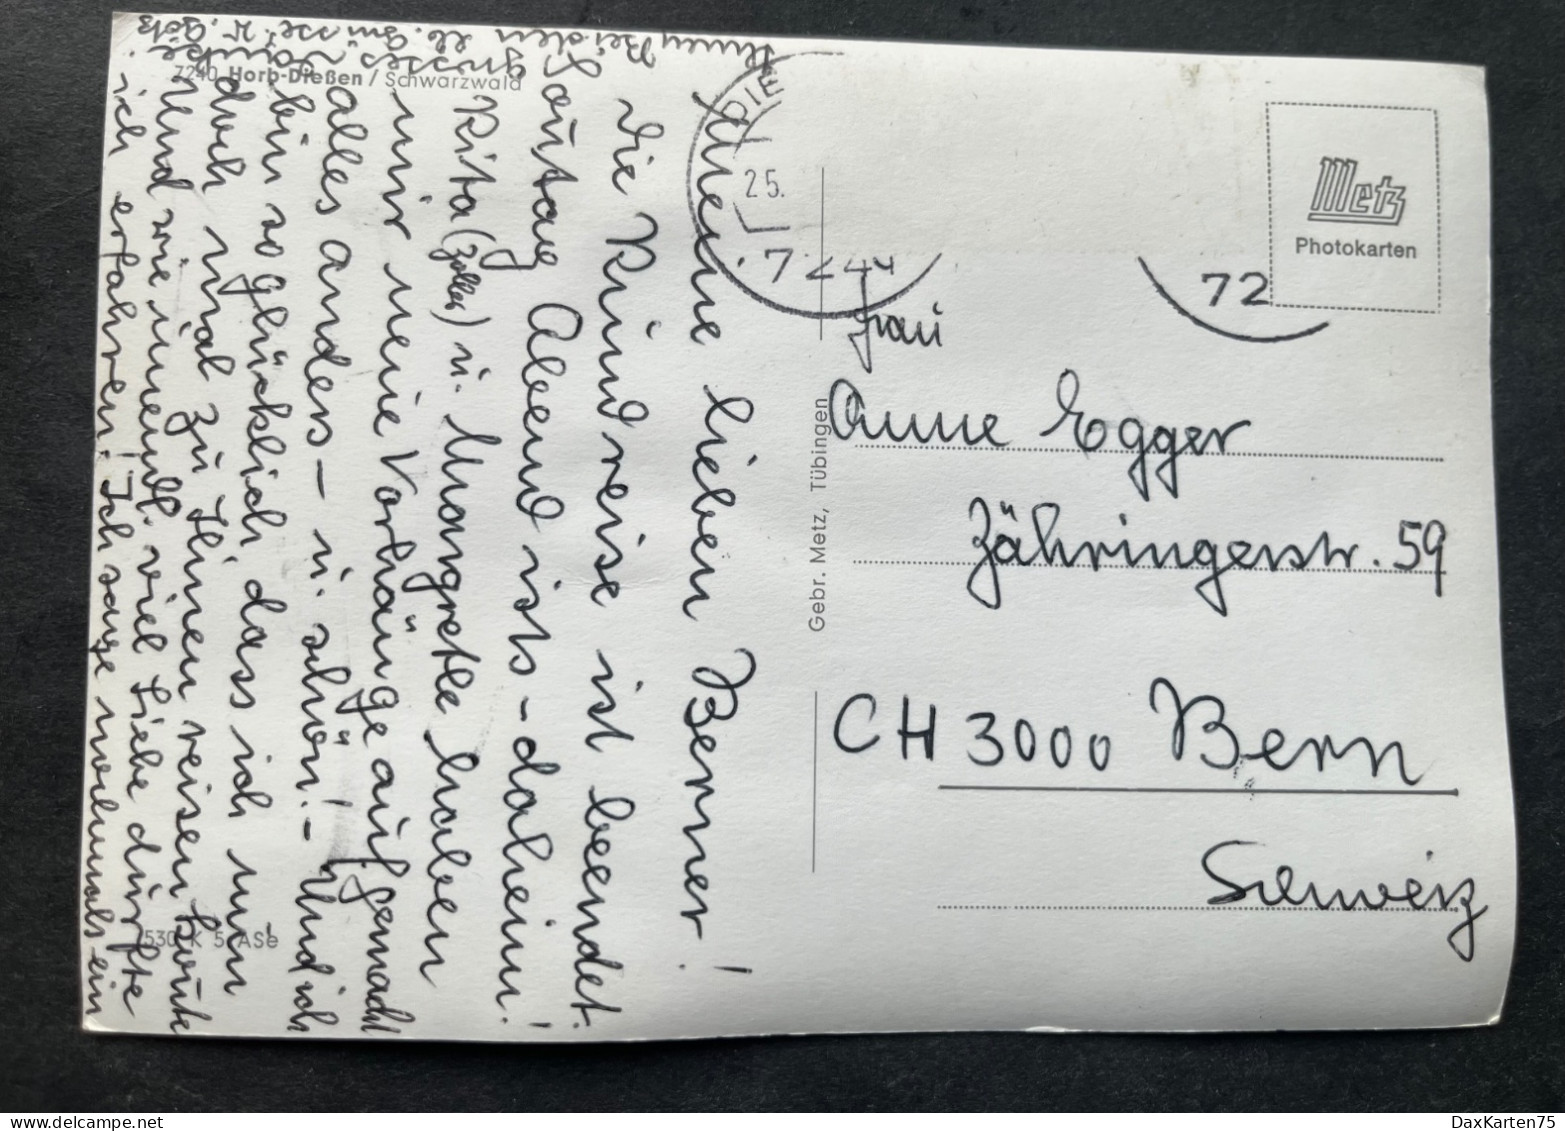 7240 Horb-Dießen / Schwarzwald
Meine lieben Berner!
die Rundreise ist beendet.
Abend ists - daheim!
Rita (Zoller) u. Margretle haben
mir neue Vorhänge aufgemacht
alles anders - u. schön! - Und ich
bin so glücklich, dass ich nun
doch mal zu Ihnen reisen konnte
Und wie unendl. viel Liebe durfte
ich erfahren! Ich sage nochmals ein
grosses Danke
Ihnen Beiden lb. Grüsse!
530 K 5 ASe
Gebr. Metz, Tübingen
DIE
25.
7240
72
Metz
Photokarten
Frau
Anne Egger
Zähringerstr. 59
CH 3000 Bern
Schweiz
delcampe.net
DaxKarten75